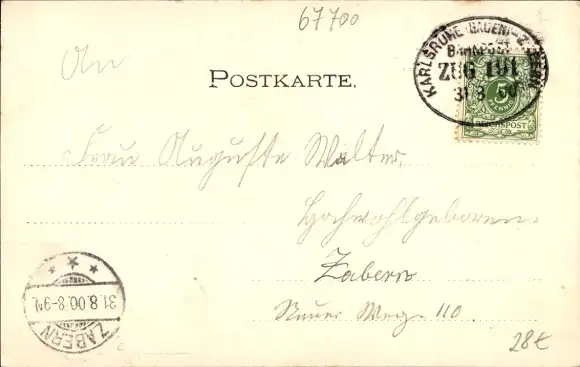 67700
An
POSTKARTE.
KARLSRUHE (BADEN)
BAHNPOST
ZUG 191
31 8 00
5
PFENNIG
REICHSPOST
Frau Auguste Walter,
Hochwohlgeboren.
Zabern
Neuer Weg 110.
31.8.00.8-9N.
ZABERN
28€